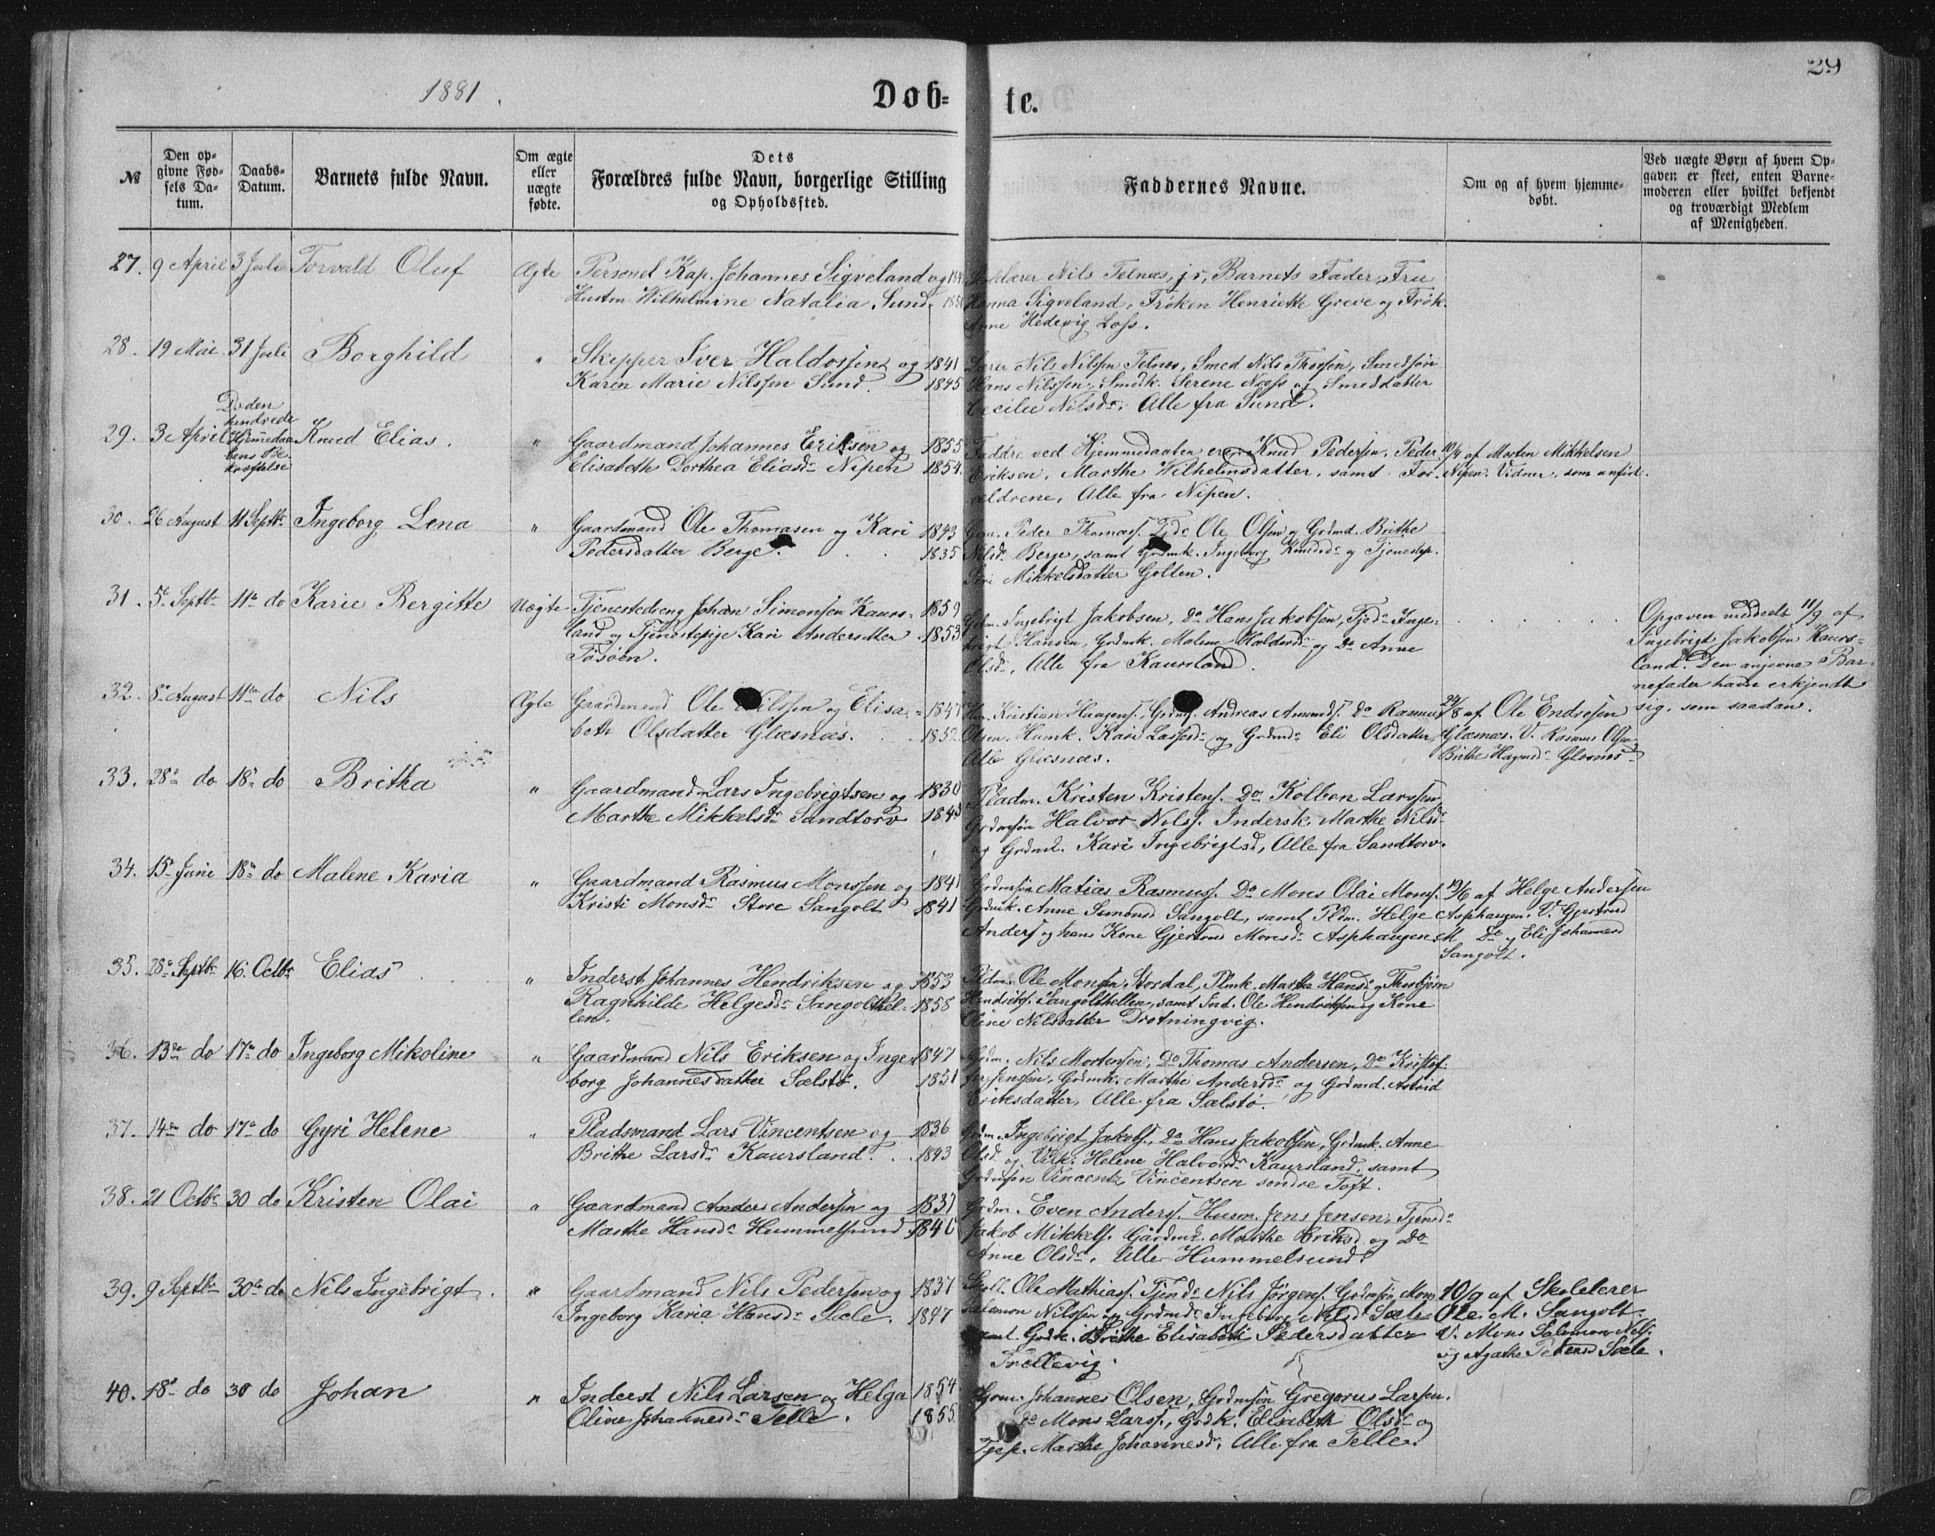 1881.
Døb-
te.
29
№
Den op-
givne Fød-
sels Da-
tum.
Daabs-
Datum.
Barnets fulde Navn.
Om ægte
eller
uægte
fødte.
Dets
Forældres fulde Navn, borgerlige Stilling
og Opholdssted.
Faddernes Navne.
Om og af hvem hjemme-
døbt.
Ved uægte Børn af hvem Op-
gaven er skeet, enten Barne-
moderen eller hvilket bekjendt
og troværdigt Medlem
af Menigheden.
27. 9 April 3 Juli Torvald Oluf Ægte Personel Kap. Johannes Sigveland og
Hustru Wilhelmine Natalia Sund.
Nils Telnæs, jr, Barnets Fader, Fru
Hanna Sigveland, Frøken Henriette Greve og Frøk.
Anne Hedevig Loss.
28. 19 Mai 31 Juli Borghild " Skipper Iver Haldorssen og 1841
Karen Marie Nilssen Sund. 1845
Lærer Nils Nilssen Telnæs, Smed Nils Thorsen, Smedsøn
Hans Nilssen, Smedk. Serene Næss og Smeddatter
Cecilie Nilsdr, Alle fra Sund.
29. 3 April Knud Elias. " Gaardmand Johannes Eriksen og 1855
Elisabeth Dorthea Eliasdr Nipen 1854.
Faddre ved Hjemmedaaben ere: Knud Pedersen, Peder
Eriksen, Marthe Wilhelmsdatter, samt For-
ældrene, Alle fra Nipen.
af Morten Mikkelsen
Nipen. Vidner, som anført.
30. 26 August 11 Septbr Ingeborg Lena " Gaardmand Ole Thomasen og Kari 1843
Pedersdatter Berge. 1835
Peder Thomass. Ole Olsen og Grdmd. Brithe
Nilsdr Berge, samt Grdmk. Ingeborg Knudsdr og Tjenestep.
Siri Mikkelsdatter Golten.
31. 5 Septbr 11te do Karie Bergitte Uægte Tjenestedreng Johan Simonsen Kaurs- 1859
land og Tjenestepige Kari Andersdtter 1853
Tøsøen.
Grdm. Ingebrigt Jakobsen, Do Hans Jakobsen, Inge-
brigt Hansen, Grdmk. Malene og Do Anne
Olsdr, Alle fra Kaursland.
Opgaven meddeelt 11/9 af
Ingebrigt Jakobsen Kaurs-
land. Den angivne Bar-
nefader havde erkjendt
sig, som saadan.
32. 8 August 11te do Nils Ægte Gaardmand Ole Nilssen og Elisa- 1847
beth Olsdatter Glæsnæs. 1852
Kristian Haagens., Andreas Amunds. Do Rasmus
Olsen, Husmk. Kari Lassesdr og Grdmdr Eli Olsdatter
Alle Glæsnæs.
af Ole Endresen
Glæsnæs. V. Rasmus Olsen
Brithe Glæsnæs
33. 28 do 18 do Britha " Gaardmand Lars Ingebrigtsen og 1830
Marthe Mikkelsdr Sandtorv
Pladm. Kristen Kristens. Do Kolben Larssen,
Grdmsøn Halvor Nilss. Indersk. Marthe Nilsdr
og Grdmk. Kari Ingebrigtsd, Alle fra Sandtorv.
34. 15 Juni 18 do Malene Karia " Gaardmand Rasmus Monssen og 1841
Kristi Monsdr Store Sangolt 1841
Grdmsøn Matias Rasmuss. Do Mons Olai Monss.
Grdmk. Anne Simonsd Sangolt, samt Pldm. Helge
Anders. og hans Kone Gjertrud Monsdr Asphaugen.
19/6 af Helge Andersen
Asphaugen. V. Gjertrud
M. Do og Eli Johannesd
Sangolt.
35. 28 Septbr 16 Octbr Elias " Inderst Johannes Hendriksen og 1853
Ragnhilde Helgesdr Sangolthel- 1858
len.
Pldm. Ole Monsen Stordal, Plmk. Marthe Hansd og Thorbjørn
Hendriks. Sangolthellen, samt Ind. Ole Hendriksen og Kone
Oline Nilsdatter Drotningvig.
36. 13de do 17 do Ingeborg Mikoline " Gaardmand Nils Eriksen og Inge- 1847
borg Johannesdatter Sælstø. 1851
Grdm. Nils Mortensen, Do Thomas Andersen, Do Kristof-
fer Jenssen, Grdmk. Marthe Andersdr og Grdmd. Astrid
Eriksdatter, Alle fra Sælstø.
37. 14de do 17 do Gyri Helene " Pladsmand Lars Vincentsen og 1836
Brithe Larsdr Kaursland. 1843
Grdm. Ingebrigt Jakobs., Do Hans Jakobsen, Grdmk. Anne
Olsdr og Helene Halvorsdr Kaursland, samt
Grdmsøn Vincents Vincentsen søndre Toft.
38. 21 Octbr 30 do Kristen Olai " Gaardmand Anders Andersen og 1837
Marthe Hansdr Hummelsund. 1846
Grdm. Even Anders. Husm. Jens Jensen, Tjensdr
Jakob Mikkels. Gardmk. Marthe Eriksd. og Do
Anne Olsdr. Alle Hummelsund.
39. 9 Septbr 30te do Nils Ingebrigt. " Gaardmand Nils Pedersen og 1837
Ingeborg Karia Hansdr Sæle. 1847
Ole Mathiass. Tjendr Nils Jørgens. Grdmsøn Mons
Salamon Nilssen og Grdmdr Ingeborg Nilsd Sæle
samt Grdk. Brithe Elisabeth Pedersdatter
Trællevig.
10/9 af Skolelærer
Ole M. Sangolt.
V. Mons Salamon Nils.
og Agathe Pedersd Sæle.
40. 18 do 30 do Johan " Inderst Nils Larsen og Helga 1854
Oline Johannesdr Telle. 1855
Grdm. Johannes Olsen, Grdmsøn Gregorus Larsen.
Do Mons Larss., Grdk. Elisabeth Olsdr og
Tjep. Marthe Johannesdr, Alle fra Telle.